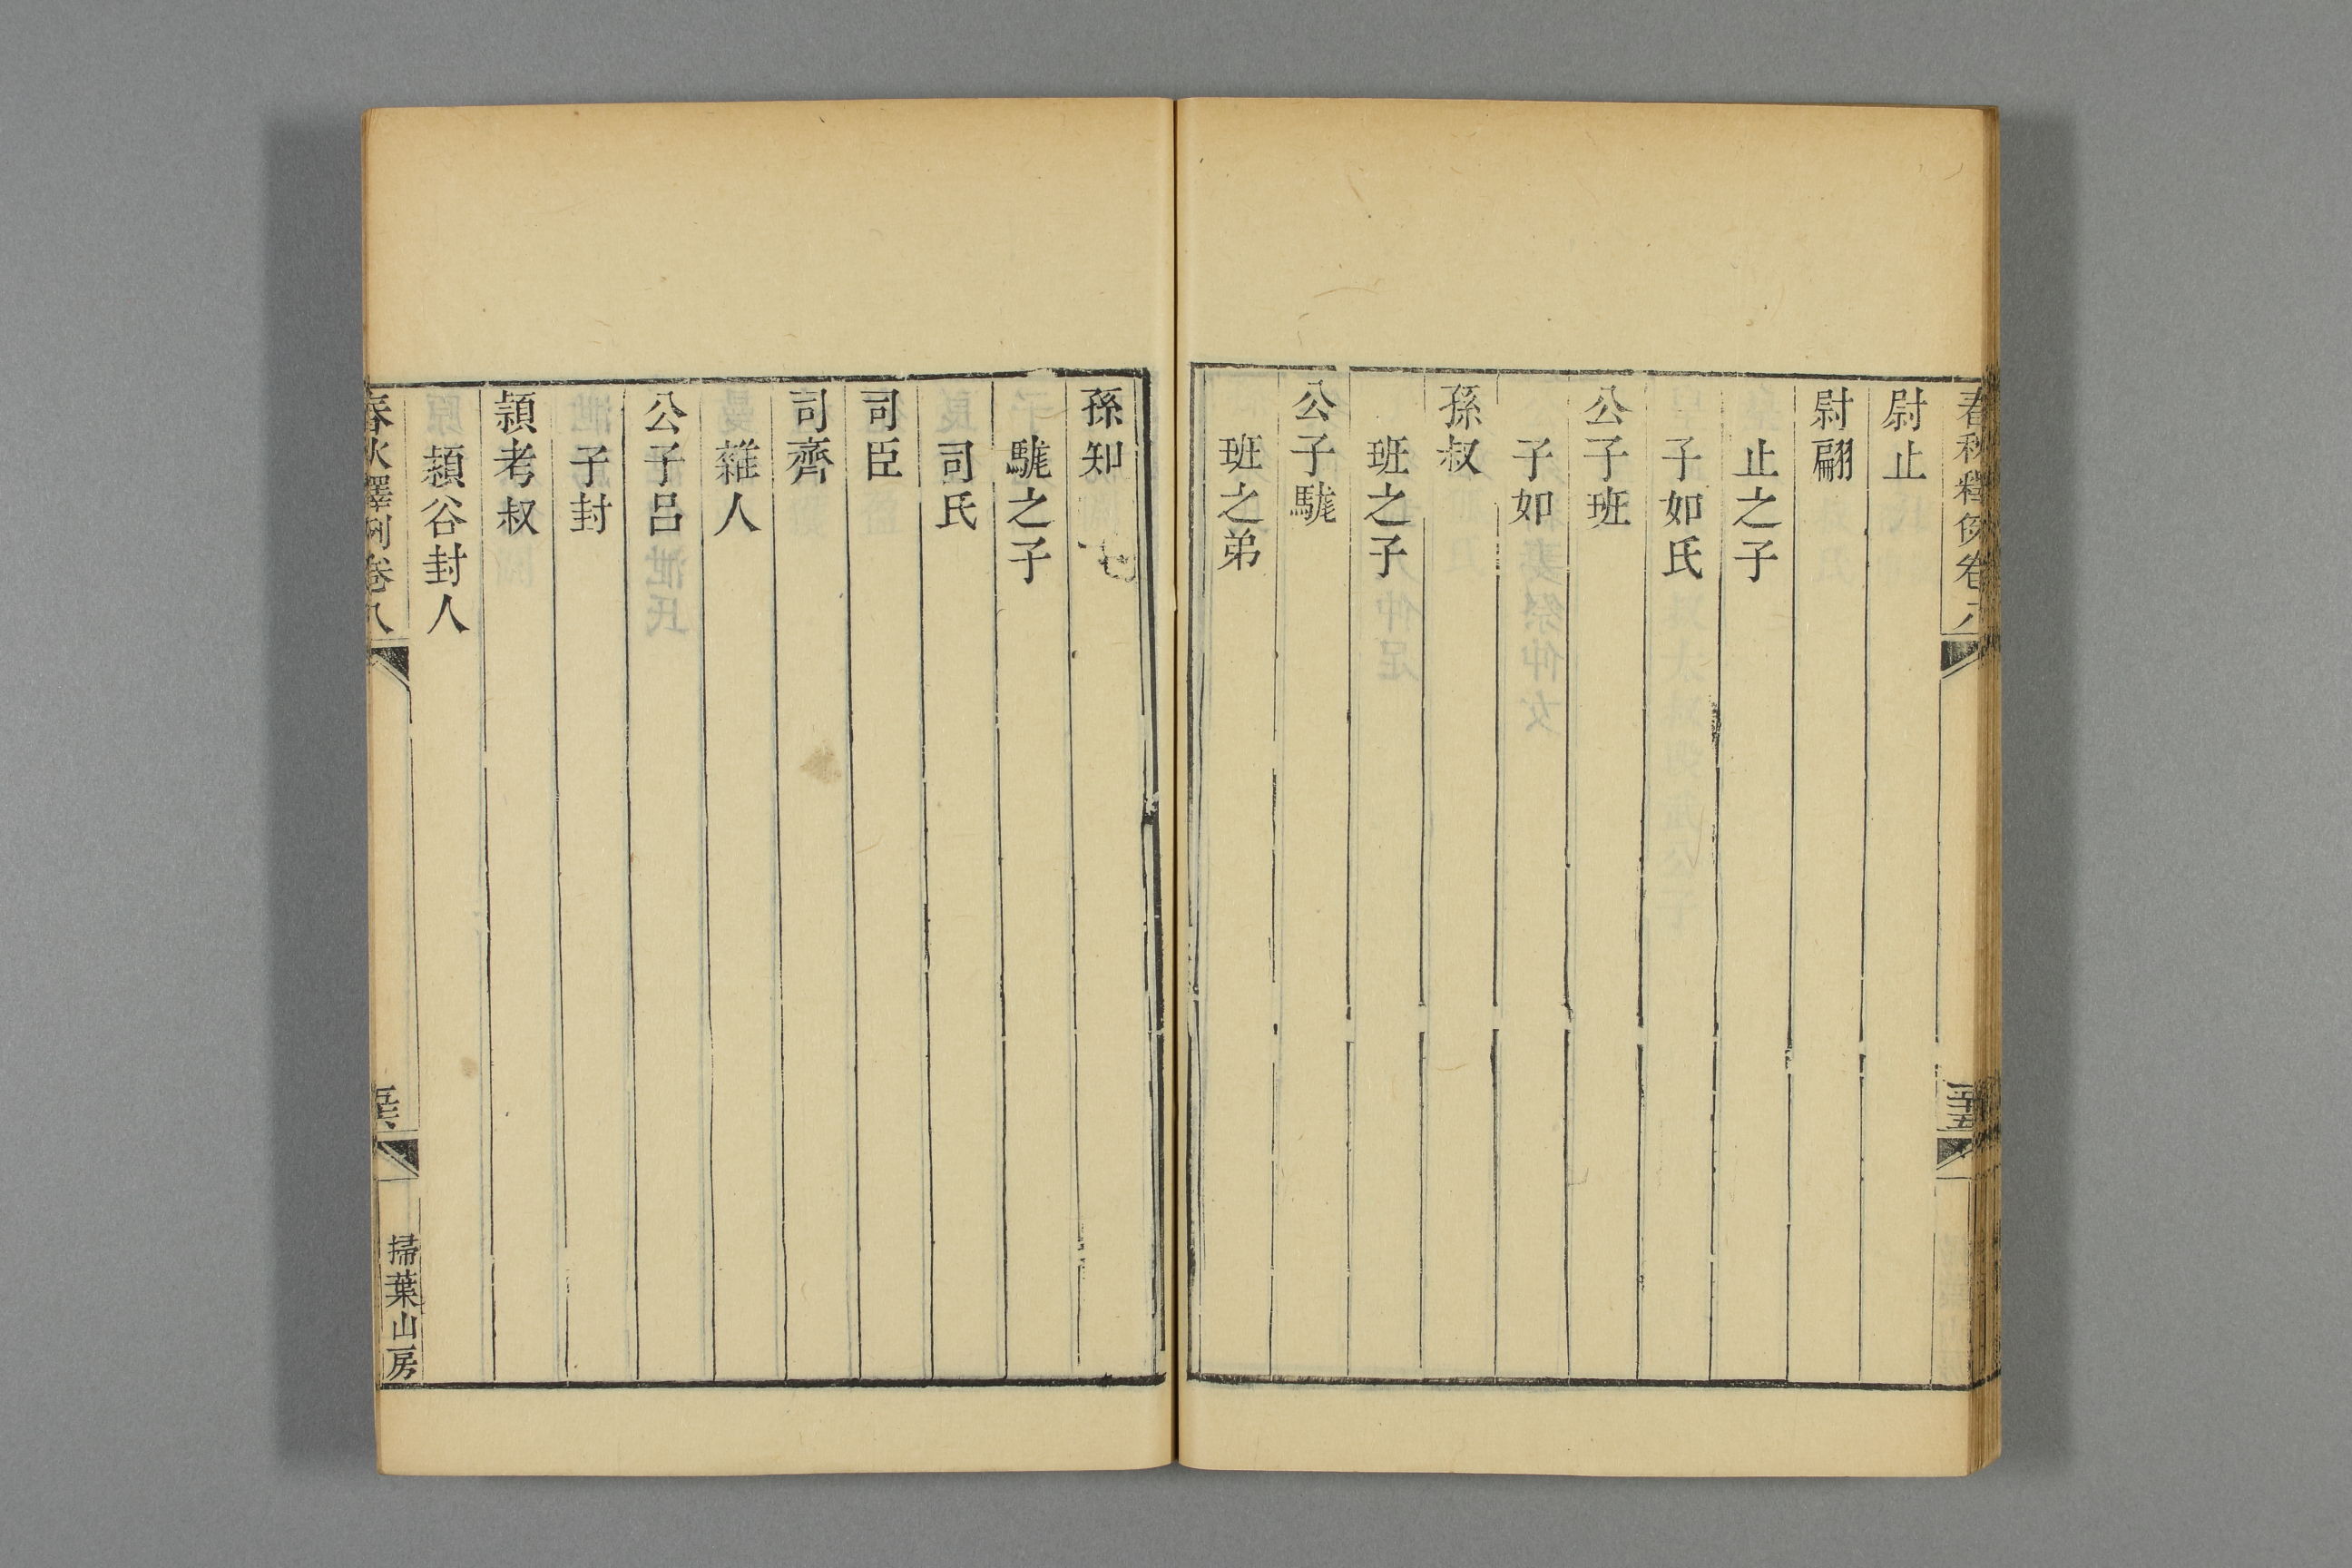 尉止
尉翩
止之子
子如氏
公子班
子如
孫叔
班之子
公子駹
班之弟
孫知
駹之子
司氏
司臣
司齊
雜人
公子呂
子封
潁考叔
潁谷封人
春秋釋例卷八
掃葉山房